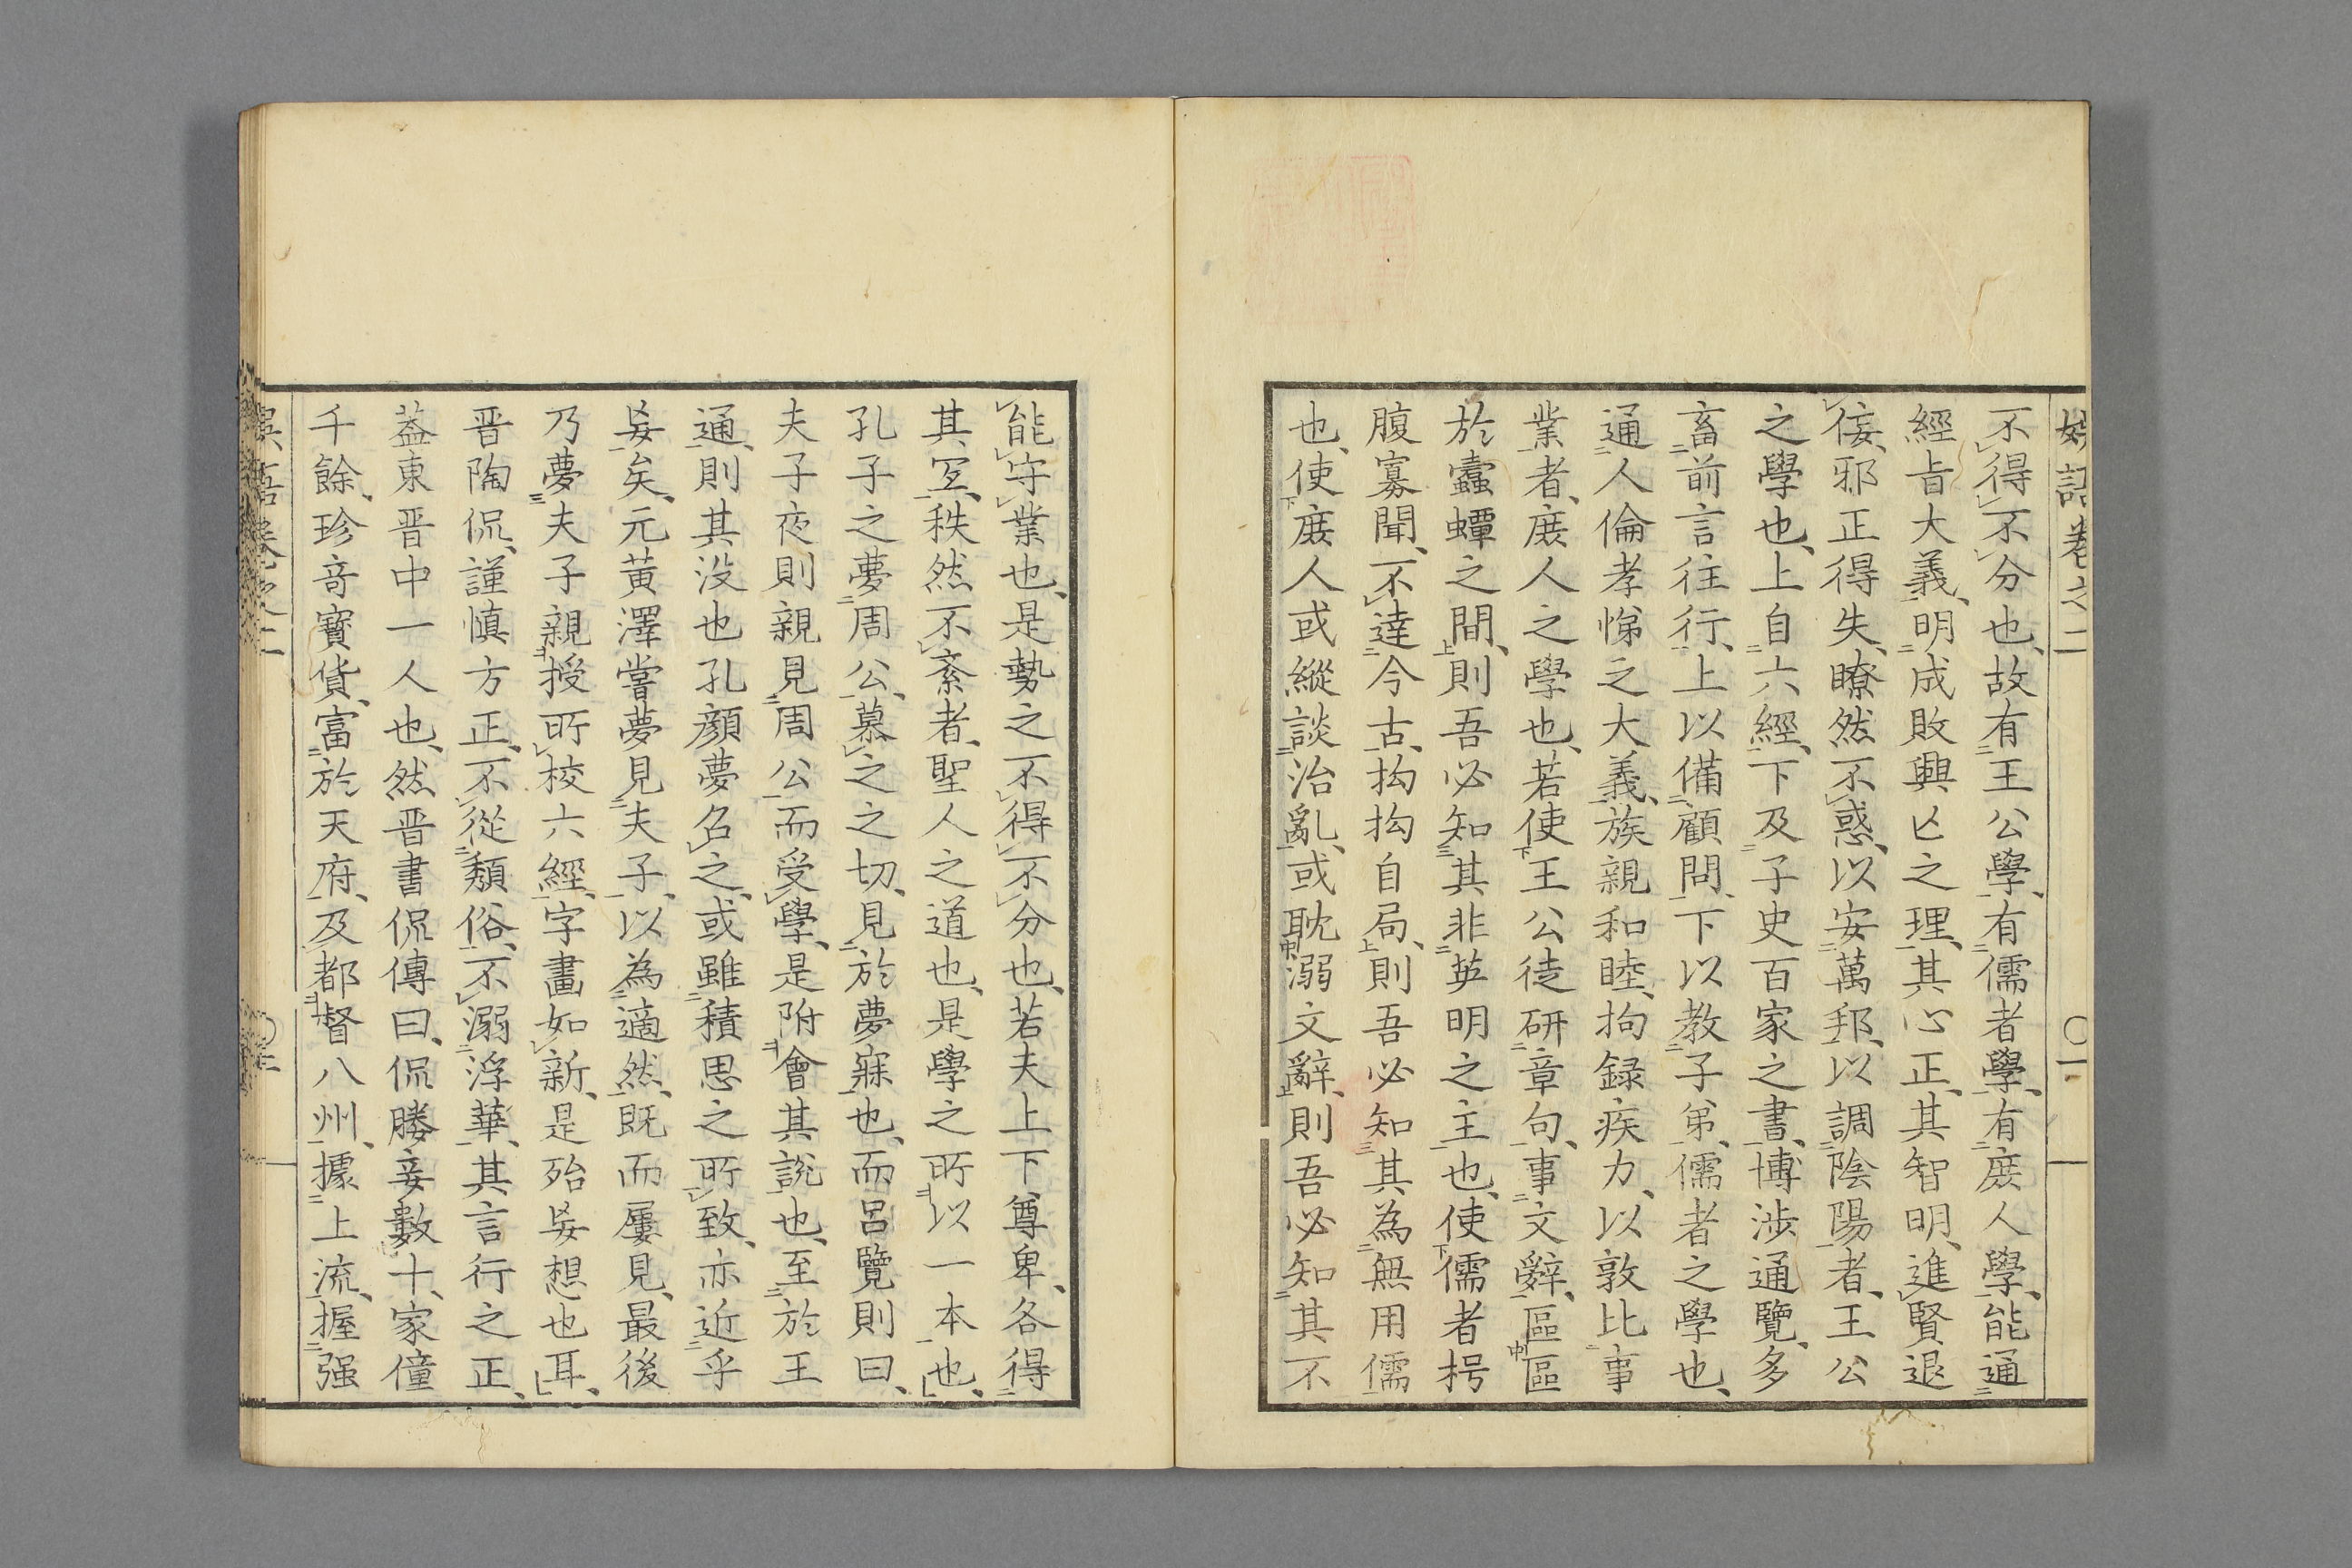 不得不分也、故有王公學、有儒者學、有庻人學、能通
經㫖大義、明成敗興亾之理、其心正、其智明、進賢退
佞、邪正得失、瞭然不惑、以安萬邦、以調陰陽者、王公
之學也、上自六經、下及子史百家之書、博渉通覽、多
畜前言往行、上以備顧問、下以教子弟、儒者之學也、
通人倫孝悌之大義、族親和睦、拘録疾力、以敦比事
業者、庻人之學也、若使王公徒研章句、事文辭、區區
於蠹蟫之間、則吾必知其非英明之主也、使儒者枵
腹寡聞、不達今古、拘拘自局、則吾必知其為無用儒
也、使庻人或縱談治亂、或耽溺文辭、則吾必知其不
能守業也、是勢之不得不分也、若夫上下尊卑、各得
其冝、秩然不紊者、聖人之道也、是學之所以一本也、
孔子之夢周公、慕之之切、見於夢寐也、而呂覽則曰、
夫子夜則親見周公而受學、是附會其說也、至於王
通、則其没也孔顔夢召之、或雖積思之所致、亦近乎
妄矣、元黃澤嘗夢見夫子、以為適然、既而屢見、最後
乃夢夫子親授所校六經、字畫如新、是殆妄想也耳、
晋陶侃、謹慎方正、不從頽俗、不溺浮華、其言行之正、
蓋東晋中一人也、然晋書侃傳曰、侃媵妾數十、家僮
千餘、珍竒寶貨、富於天府、及都督八州、據上流、握强